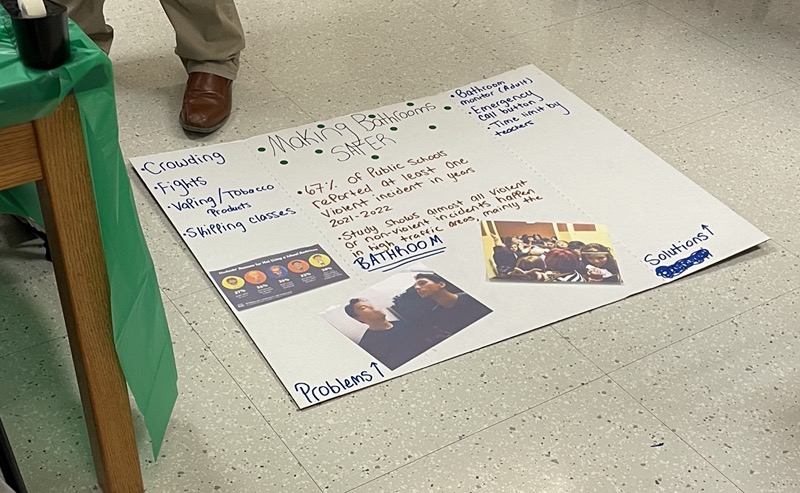 Making Bathrooms
SAFER
• Crowding
• Fights
• Vaping/Tobacco
Products
• Skipping classes
• 67% of Public Schools
reported at least one
violent incident in years
2021-2022
• Study shows almost all violent
or non-violent incidents happen
in high traffic areas, mainly the
BATHROOM
• Bathroom
monitor (Adult)
• Emergency
call button
• Time limit by
teachers
Problems ↑
Solutions ↑